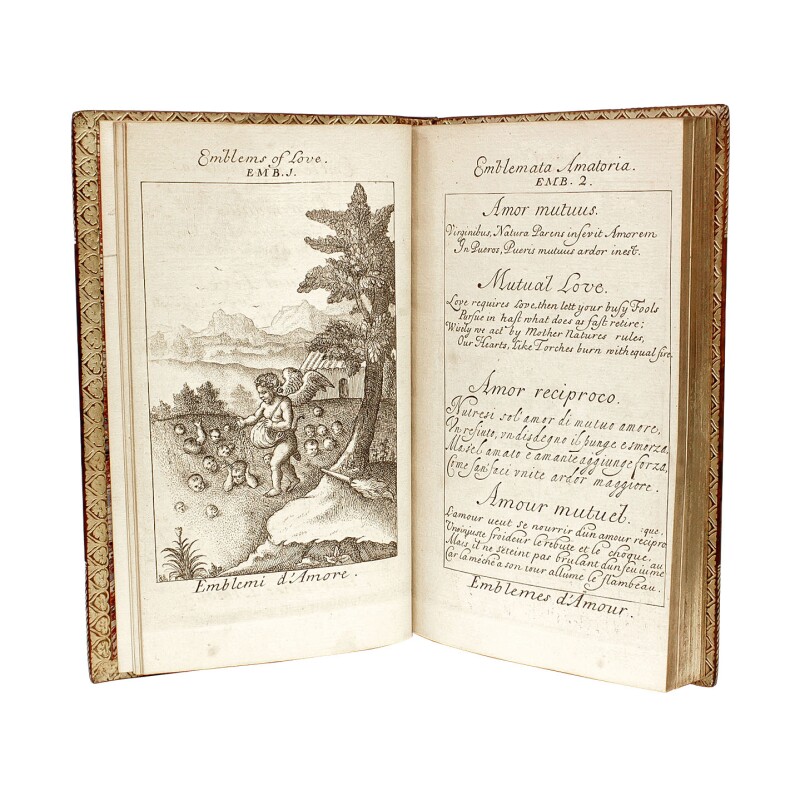 Emblems of Love.
EMB.1.
Emblemi d'Amore.
Emblemata Amatoria.
EMB. 2.
Amor mutuus.
Virginibus, Natura Parens inſevit Amorem
In Pueros, Pueris mutuus ardor ineſt.
Mutual Love.
Love requires Love, then lett your buſy Fools
Perſue in haſt what does as faſt retire;
Wisely we act by Mother Natures rules,
Our Hearts, like Torches burn with equal fire.
Amor reciproco.
Nutresi sol' amor di mutuo amore,
Un reſiuto, un disdegno il punge e smorza,
Ma se l amato e amante aggiunge forza,
Come ſan faci unite ardor maggiore.
Amour mutuel.
L'amour veut se nourrir d'un amour recipro que,
Une injuste froideur le rebute et le choque,
Mais il ne s'eteint pas brulant d'un feu
Car la méche a son tour allume le flambeau.
Emblemes d'Amour.